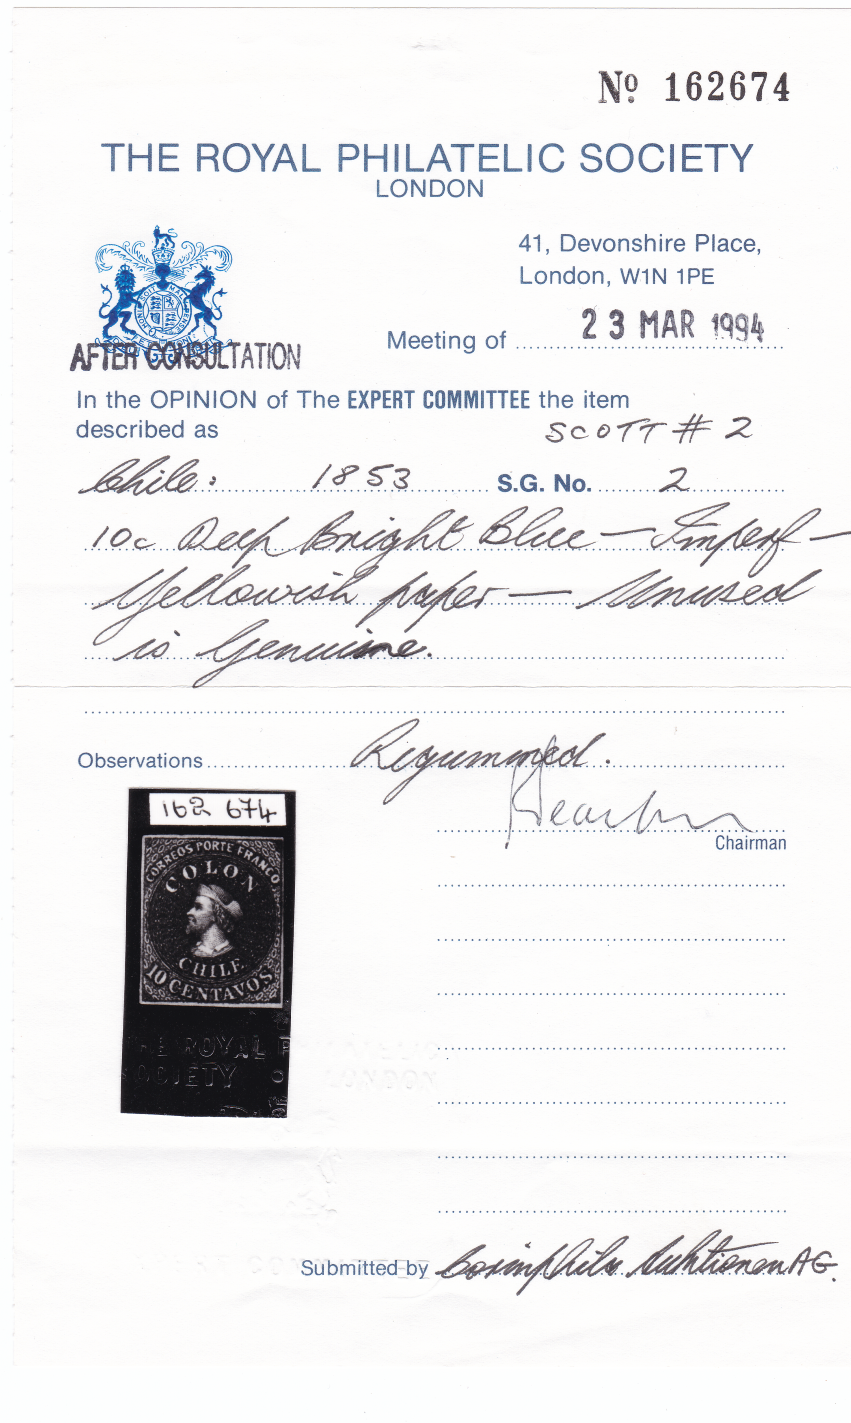 Nº 162674
THE ROYAL PHILATELIC SOCIETY
LONDON
41, Devonshire Place,
London, W1N 1PE
Meeting of 23 MAR 1994
AFTER CONSULTATION
In the OPINION of The EXPERT COMMITTEE the item
described as SCOTT # 2
Chile: 1853 S.G. No. 2
10c Deep Bright Blue — Imperf —
Yellowish paper — Unused
is Genuine.
Observations Regummed.
Chairman
162 674
CORREOS PORTE FRANCO
COLON
CHILE
10 CENTAVOS
THE ROYAL P
SOCIETY
LONDON
Submitted by Corinphila Auktionen AG.